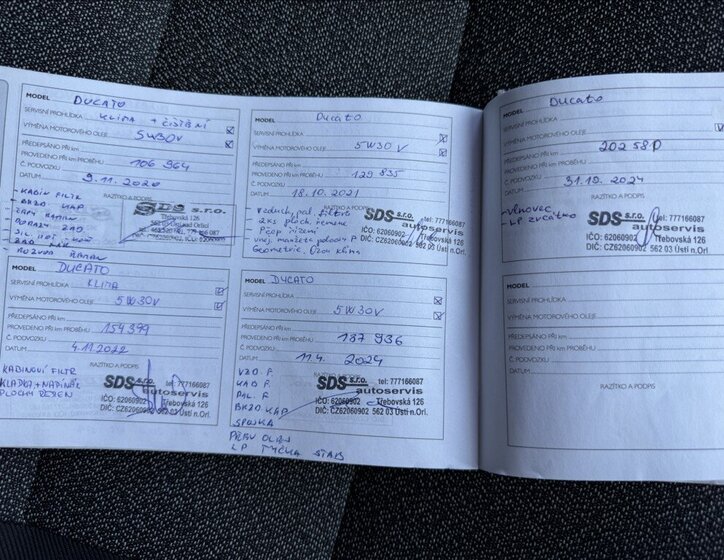 MODEL DUCATO
SERVISNÍ PROHLÍDKA KLIMA + ČIŠTĚNÍ
VÝMĚNA MOTOROVÉHO OLEJE 5W30V
PŘEDEPSÁNO PŘI km
PROVEDENO PŘI km PROBĚHU 106 964
Č. PODVOZKU
DATUM 9.11.2020
RAZÍTKO A PODPIS
- KABIN FILTR
- BRZD. KAP
SDS s.r.o.
Třebovská 126
MODEL Ducato
SERVISNÍ PROHLÍDKA
VÝMĚNA MOTOROVÉHO OLEJE 5W30V
PŘEDEPSÁNO PŘI km
PROVEDENO PŘI km PROBĚHU 129 835
Č. PODVOZKU
DATUM 18.10.2021
RAZÍTKO A PODPIS
- vzduch, pol filtr
- 2ks ploch řemene
Geometrie, klima
SDS s.r.o. tel: 777166087
autoservis
IČO: 62060902 Třebovská 126
DIČ: CZ62060902 562 03 Ústí n.Orl.
MODEL DUCATO
SERVISNÍ PROHLÍDKA KLIMA
VÝMĚNA MOTOROVÉHO OLEJE 5W30V
PŘEDEPSÁNO PŘI km
PROVEDENO PŘI km PROBĚHU 154399
Č. PODVOZKU
DATUM 4.11.2022
RAZÍTKO A PODPIS
KABINOVÍ FILTR
KLADKA + NAPÍNÁK
PLOCHÝ ŘEMEN
SDS s.r.o. tel: 777166087
autoservis
IČO: 62060902 Třebovská 126
DIČ: CZ62060902 562 03 Ústí n.Orl.
MODEL DUCATO
SERVISNÍ PROHLÍDKA
VÝMĚNA MOTOROVÉHO OLEJE 5W30V
PŘEDEPSÁNO PŘI km
PROVEDENO PŘI km PROBĚHU 187 936
Č. PODVOZKU
DATUM 11.4. 2024
RAZÍTKO A PODPIS
VZD F.
KAB F.
PAL. F
BRZD KAP
SPOJKA
PŘEV OLEJ
LP TYČKA STAB
SDS s.r.o. tel: 777166087
autoservis
IČO: 62060902 Třebovská 126
DIČ: CZ62060902 562 03 Ústí n.Orl.
MODEL Ducato
SERVISNÍ PROHLÍDKA
VÝMĚNA MOTOROVÉHO OLEJE
PŘEDEPSÁNO PŘI km
PROVEDENO PŘI km PROBĚHU
Č. PODVOZKU
DATUM 31.10. 2024
RAZÍTKO A PODPIS
SDS s.r.o. tel: 777166087
autoservis
IČO: 62060902 Třebovská 126
DIČ: CZ62060902 562 03 Ústí n.Orl.
MODEL
SERVISNÍ PROHLÍDKA
VÝMĚNA MOTOROVÉHO OLEJE
PŘEDEPSÁNO PŘI km
PROVEDENO PŘI km PROBĚHU
Č. PODVOZKU
DATUM
RAZÍTKO A PODPIS